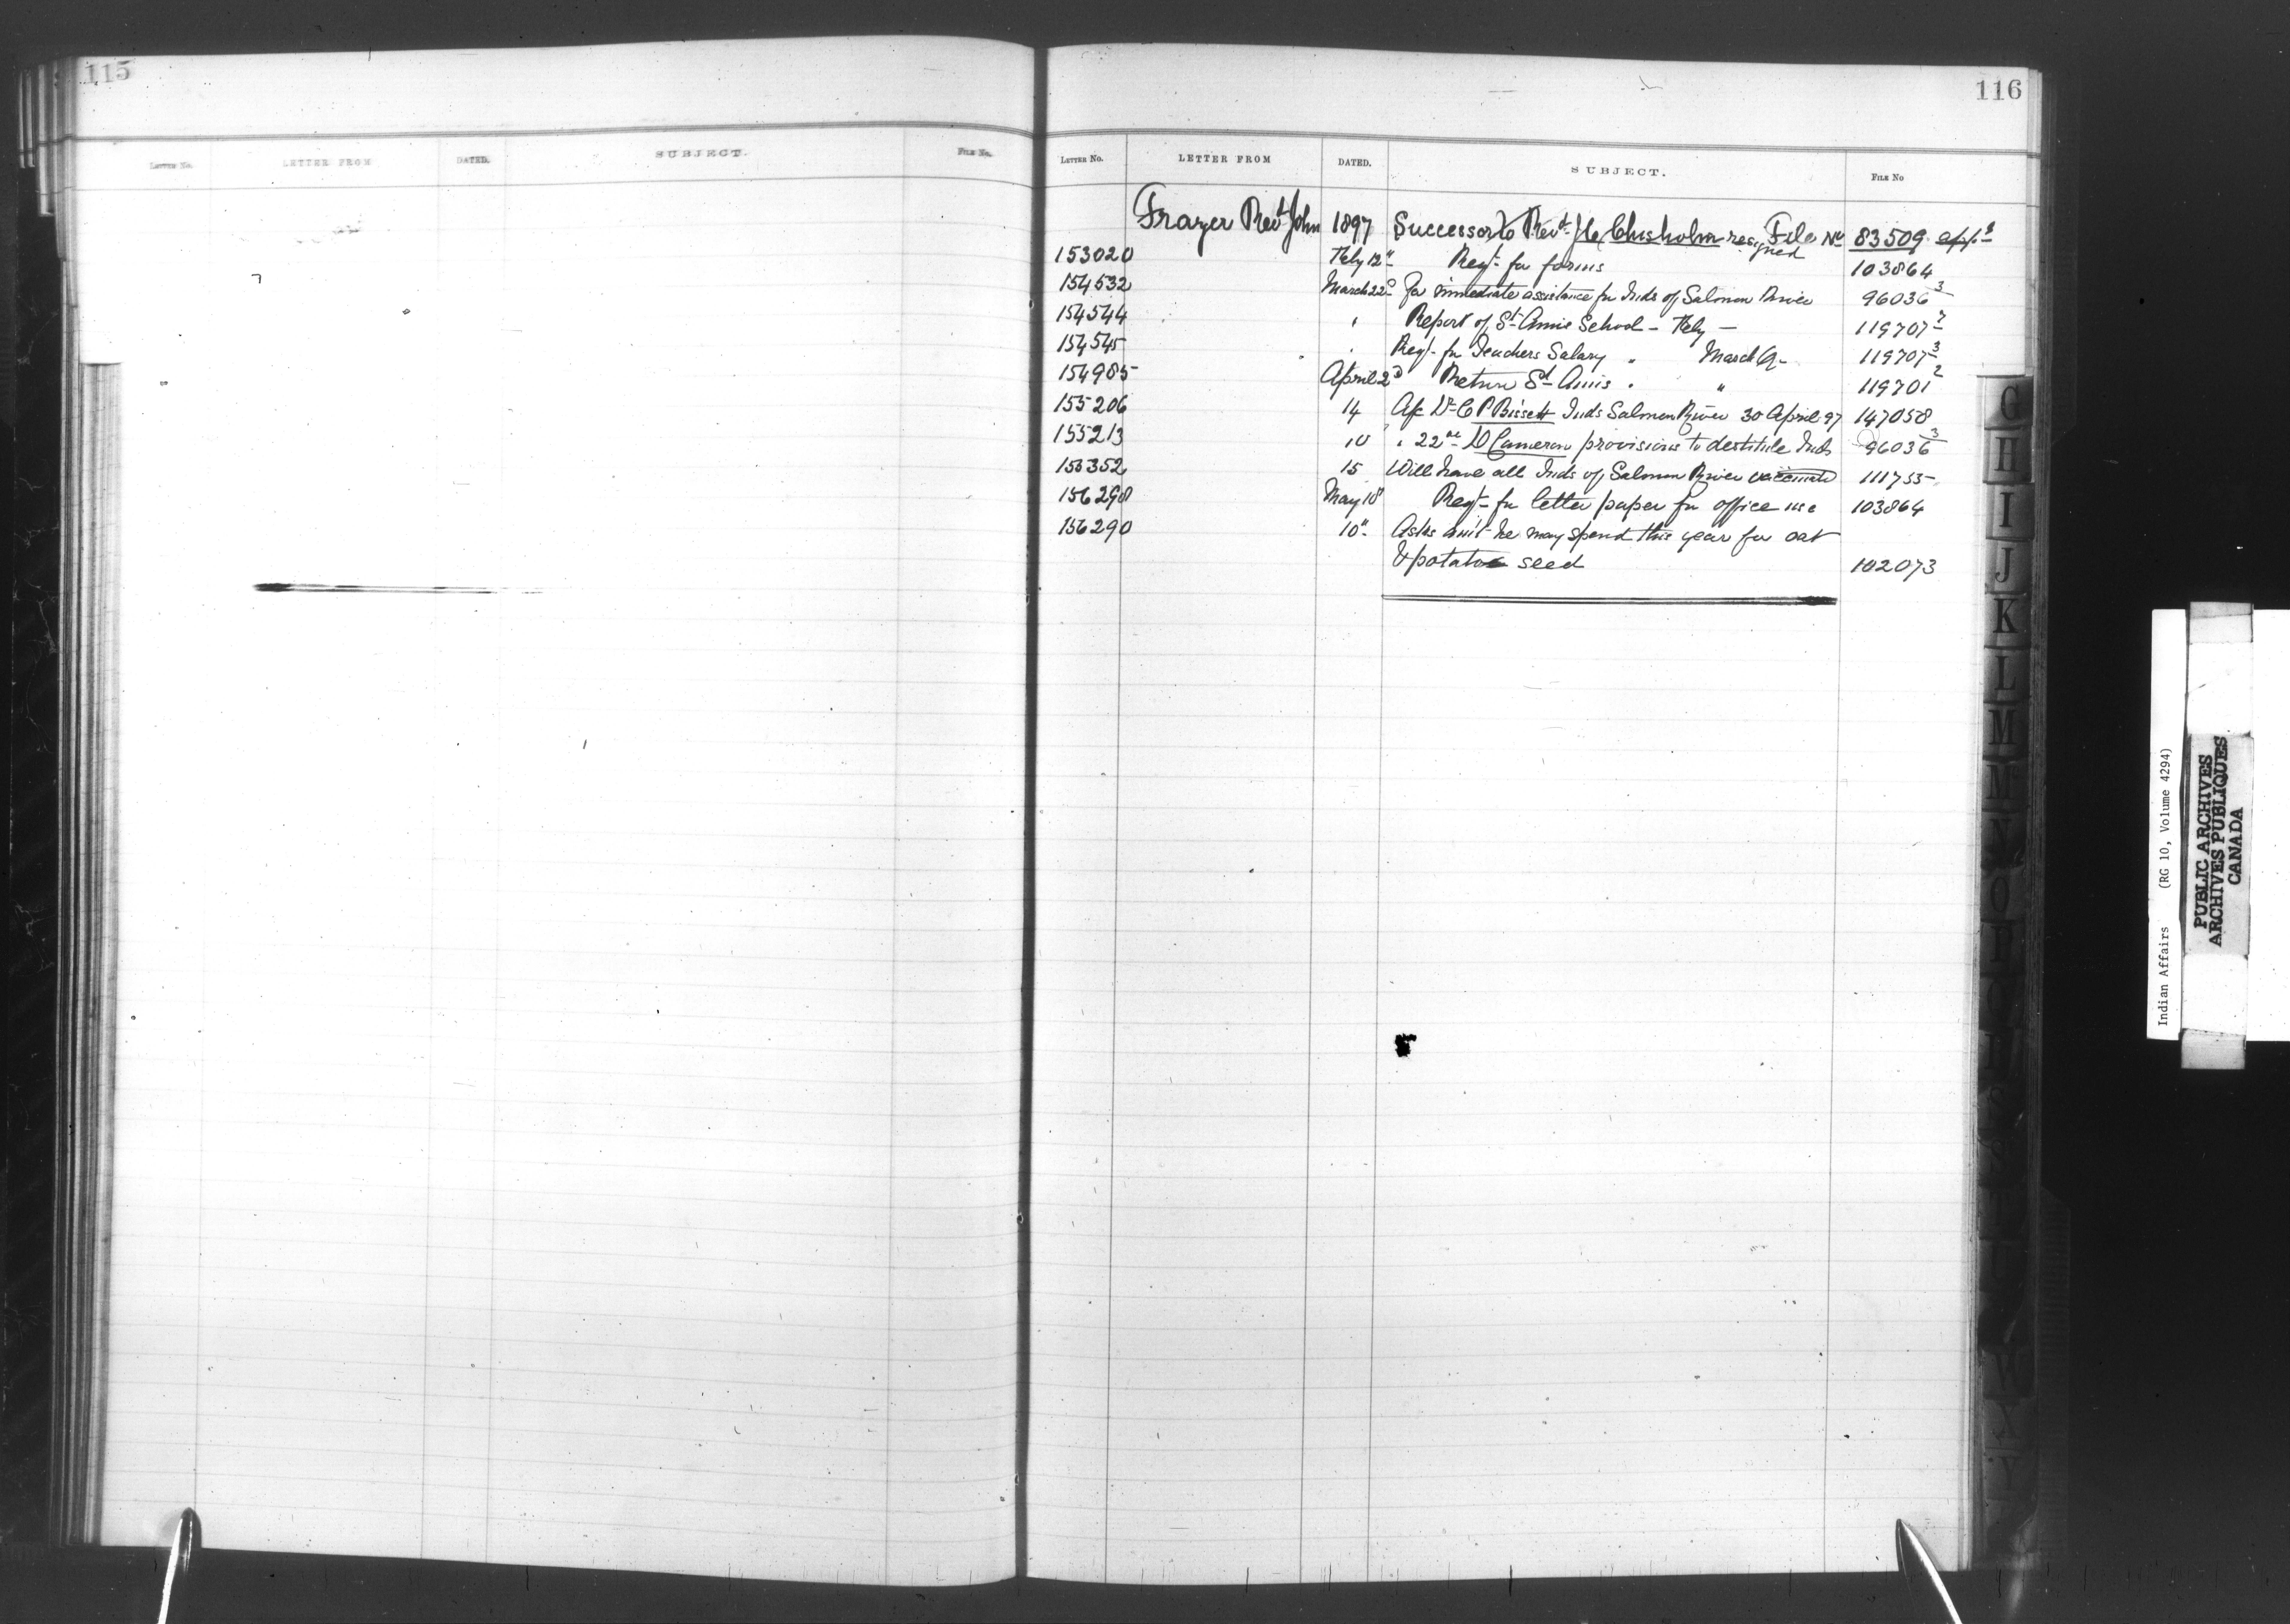 115
LETTER No. LETTER FROM DATED. SUBJECT. FILE No.
116
LETTER No. LETTER FROM DATED. SUBJECT. FILE No
Frazer Revd John 1897 Successor to Revd J C Chisholm resigned File No 83509
153020 Feby 12" Reqt for forms 103864
154532 March 22d For immediate assistance for Inds of Salmon River 96036 3
154544 " Report of St Annis School - Feby - 119707
154545 " Reqt for Teachers Salary " March Q- 119707 3
154985 April 2d Return St Annis " " 119701 2
155206 14 A/c Dr C P Bissett Inds Salmon River 30 April 97 147058
155213 10 " 22 D Cameron provisions to destitute Inds 96036 3
155352 15 Will have all Inds of Salmon River vaccinated 111755
156290 May 10" Reqt for letter paper for office use 103864
156290 10" Asks am't he may spend this year for oat
& potatoe seed 102073
G
H
I
J
K
L
M
M
N
O
P
S
S
T
U
W
X
Y
Indian Affairs (RG 10, Volume 4294)
PUBLIC ARCHIVES
ARCHIVES PUBLIQUES
CANADA